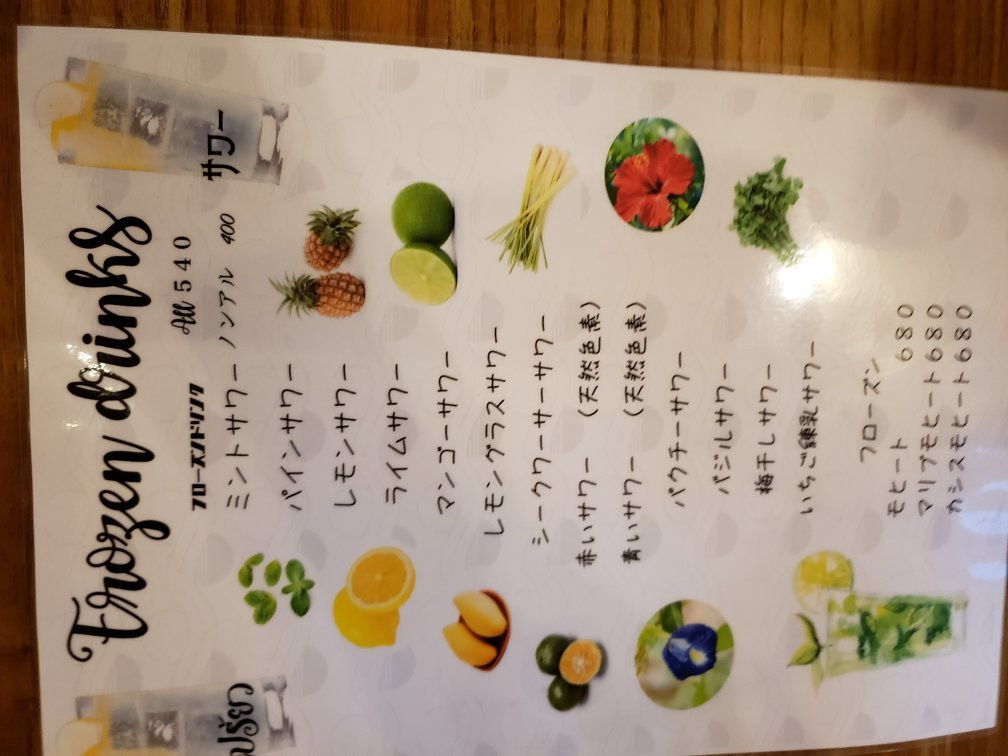 Frozen drinks
サワー
All 540
フローズンドリンク
ノンアル 400
ミントサワー
パインサワー
レモンサワー
ライムサワー
マンゴーサワー
レモングラスサワー
シークワーサーサワー
赤いサワー (天然色素)
青いサワー (天然色素)
パクチーサワー
バジルサワー
梅干しサワー
いちご錬乳サワー
フローズン
モヒート 680
マリブモヒート 680
カシスモヒート 680